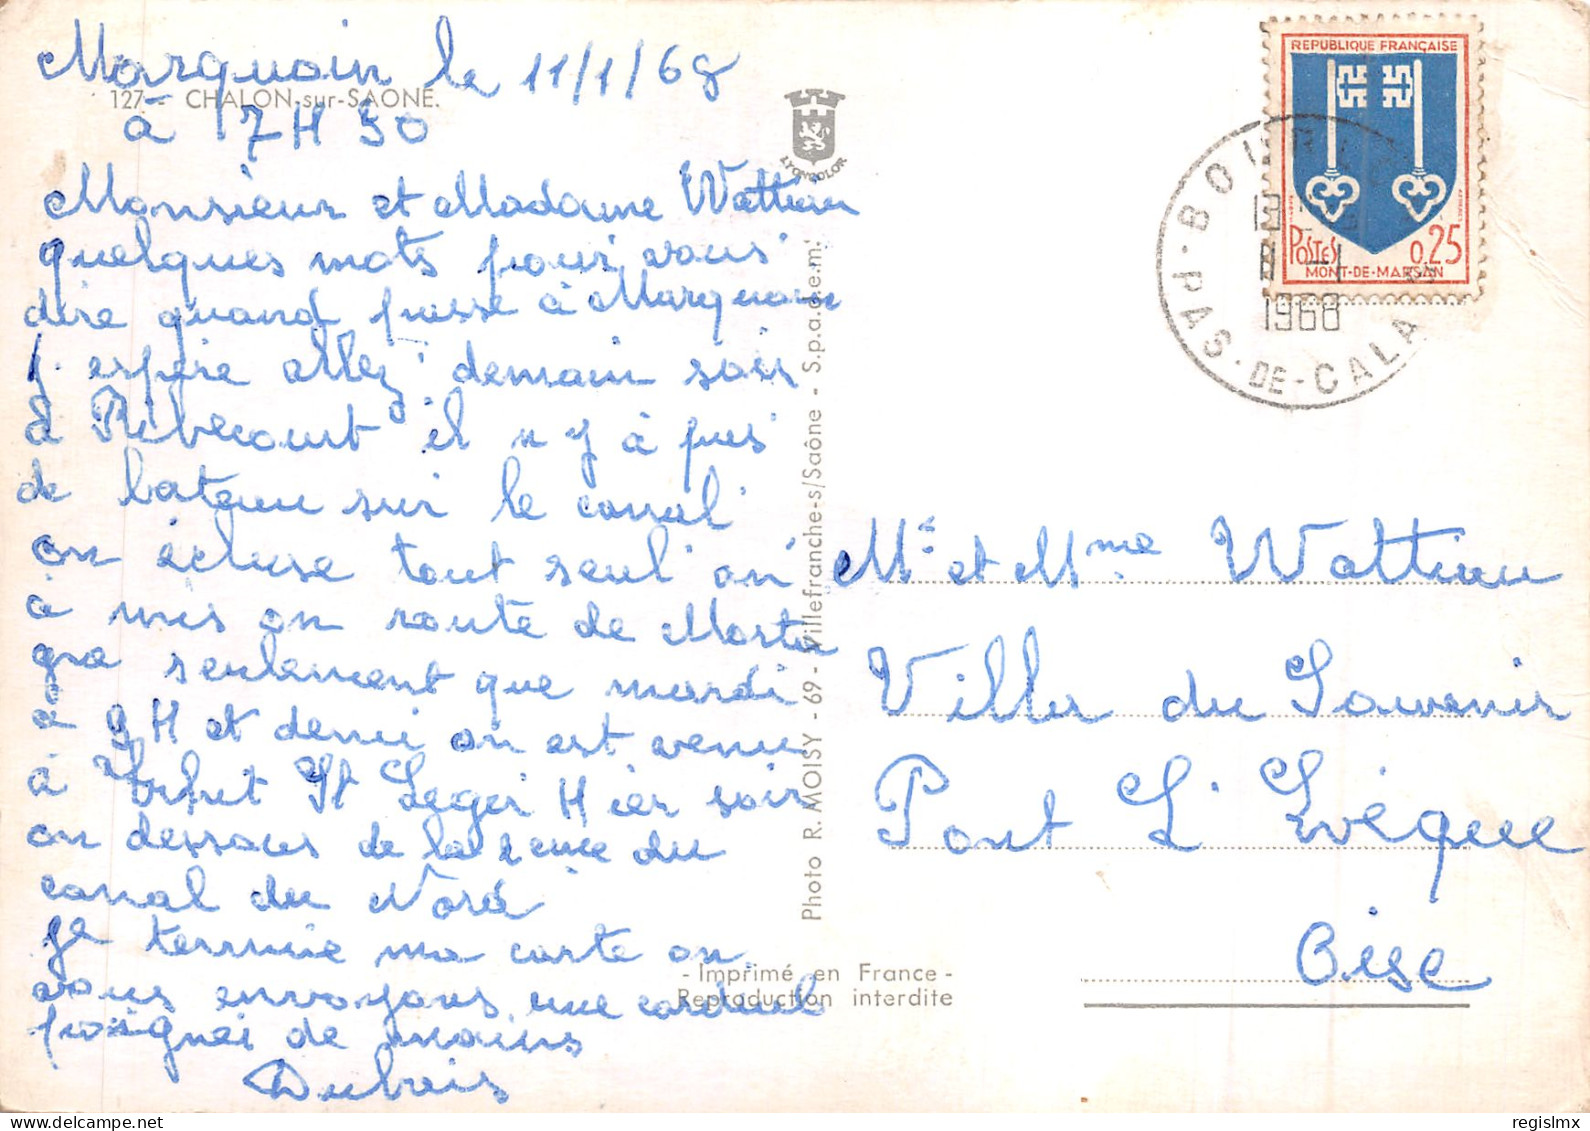 Marquoin le 11/1/68
127 - CHALON-sur-SAONE.
à 17 H 30
Monsieur et Madame Wattiau
quelques mots pour vous
dire quand passe à Marquoin
j. espère allez demain soir
à Ribecourt il n y à pas
de bateau sur le canal
on écluse tout seul on
à mis on route de Morta
gne seulement que mardi
à 9 H et demi on est venu
à St Leger Hier soir
on dessous de la du
canal du Nord
je termine ma carte on
vous envoyons une cordiale
poignei de mains
Dubois
LYONCOLOR
Photo R. MOISY - 69 - Villefranche-s/Saône - S.p.a.d.e.m.
- Imprimé en France -
Reproduction interdite
REPUBLIQUE FRANÇAISE
POSTES 0,25
MONT-DE-MARSAN
PAS-DE-CALAIS
1968
Mr et Mme Wattiau
Villa du Souvenir
Pont L'Evêque
Oise
regislmx